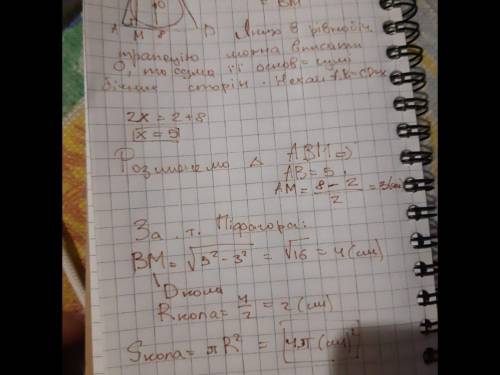 O = BM
A M 8 D Якщо в рівнобіч
трапецію можна вписати
O, то сума її основ = сумі
бічних сторін. Нехай AB=CD=x
2x = 2+8
x = 5
Розглянемо △ ABM ⇒
AB = 5,
AM = (8-2)/2 = 3(см)
За т. Піфагора:
BM = √(5²-3²) = √16 = 4 (см)
Dкола
Rкола = 4/2 = 2 (см)
Sкола = πR² = 4π (см)²